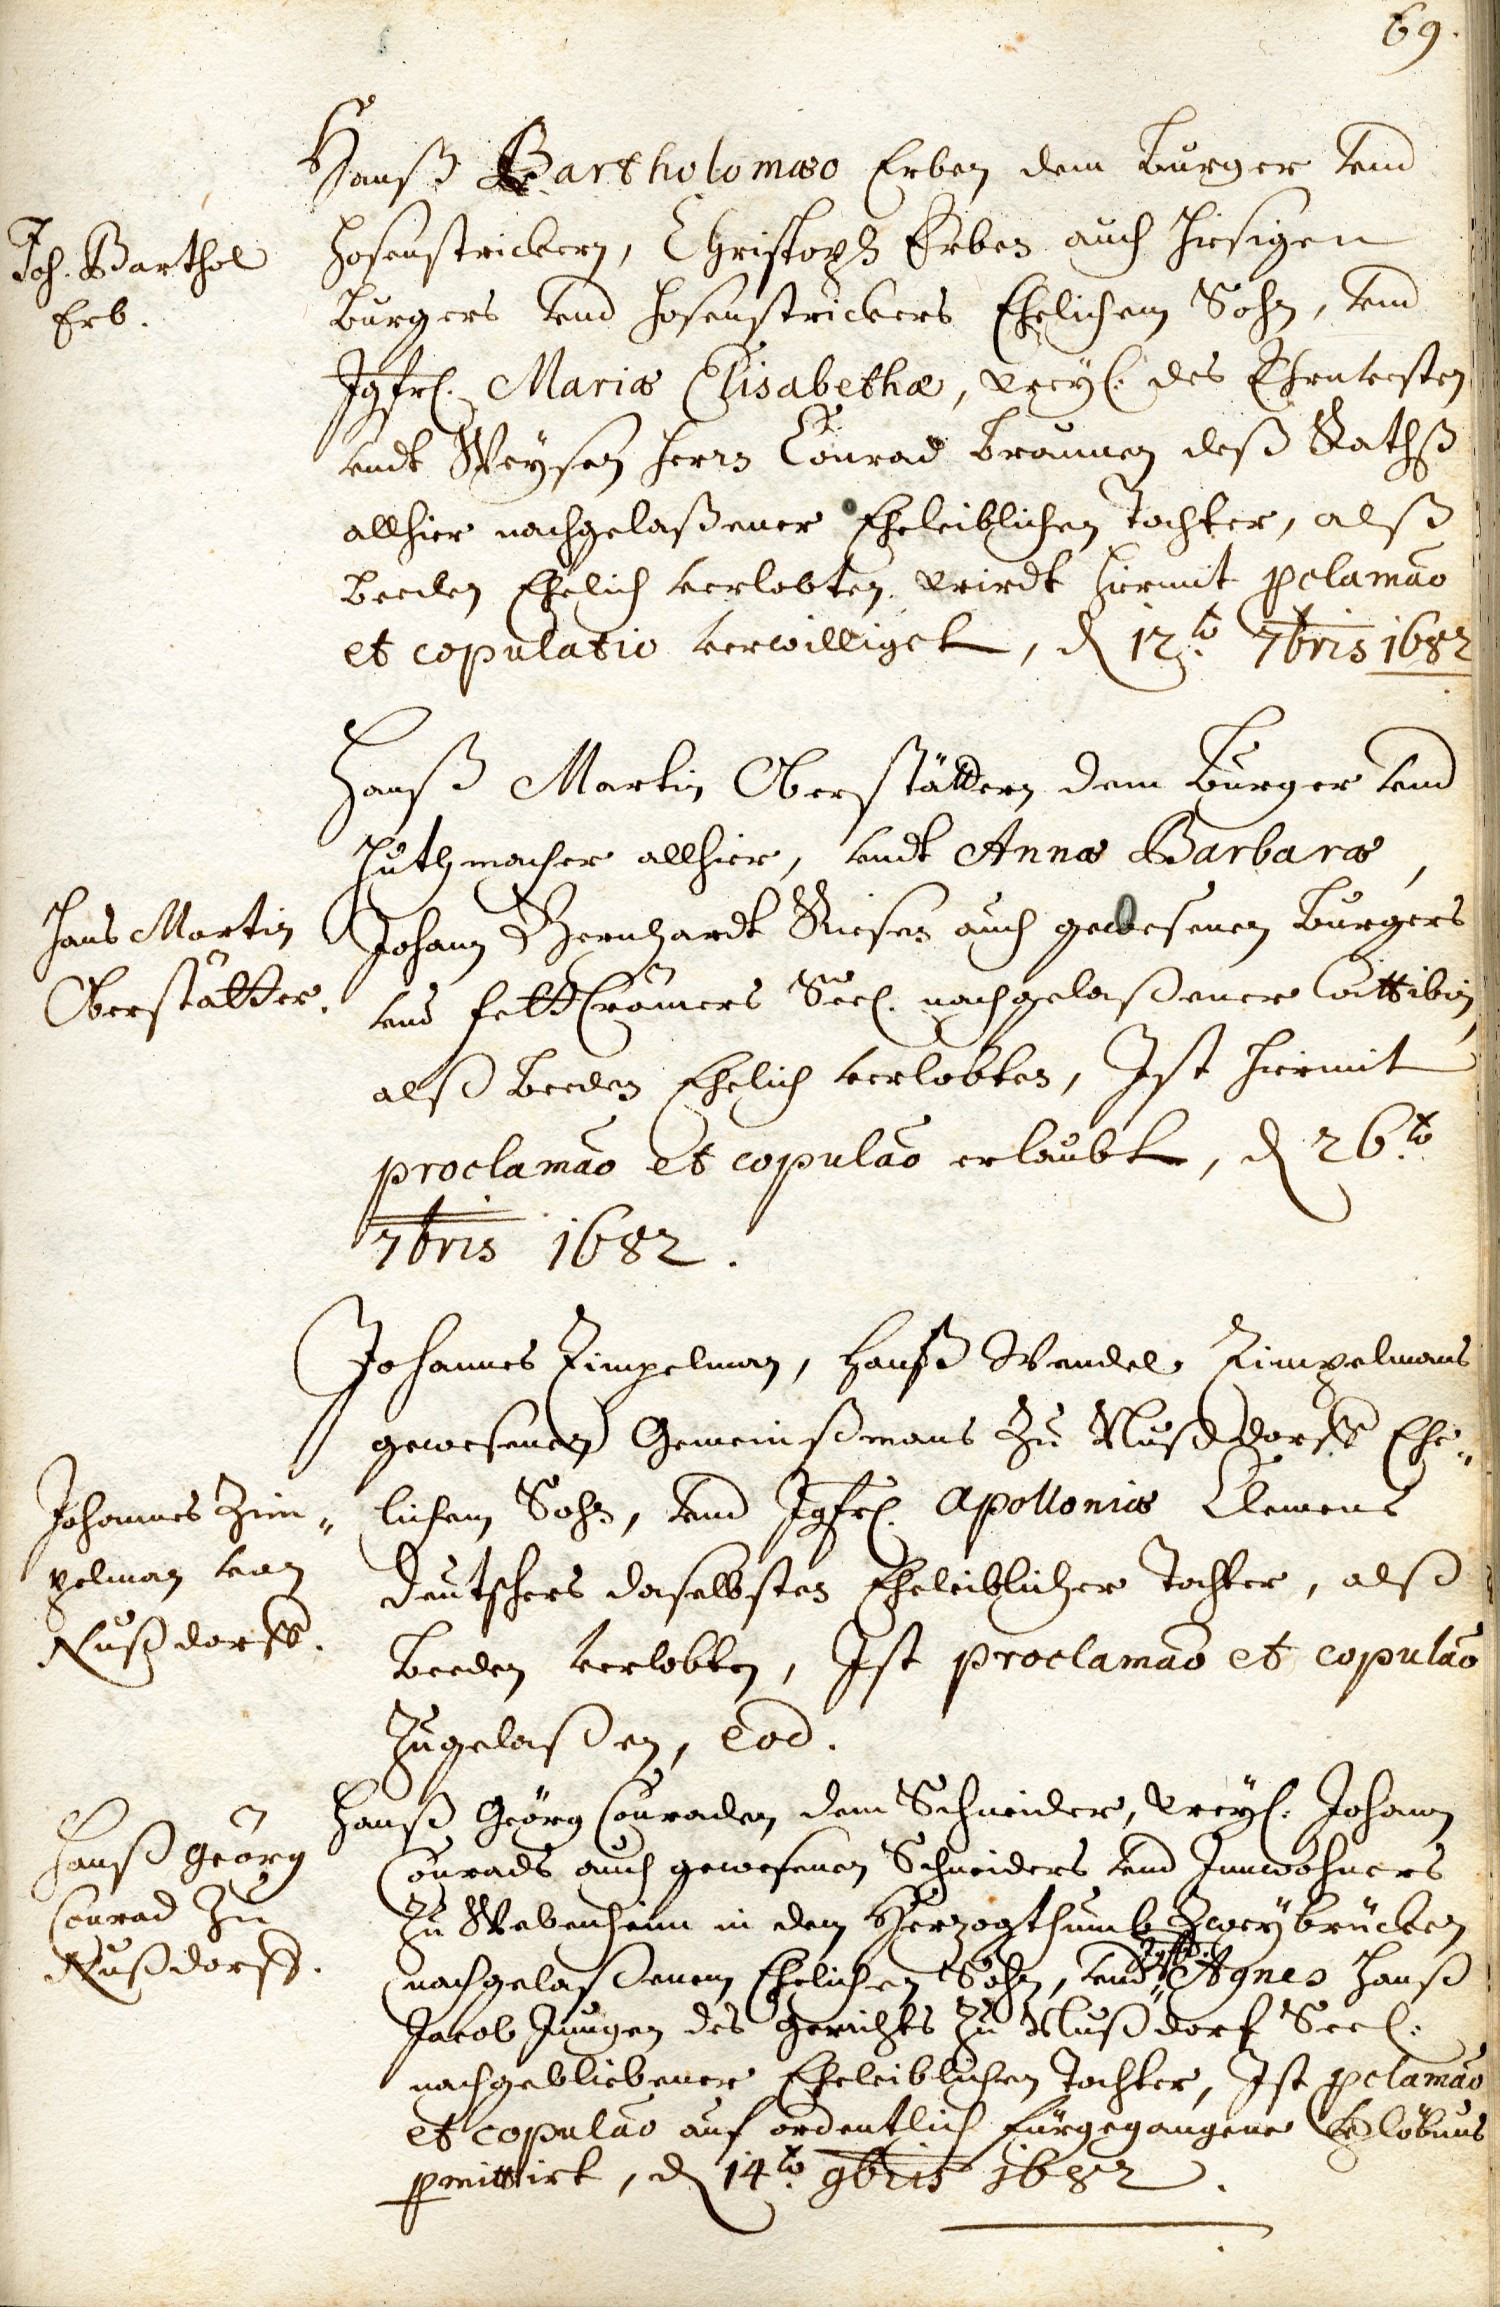 69.
Hanß Bartholomæo Erben dem Burger vnd
Joh. Barthol
Erb.
hosenstrickern, Christoph Erben auch hiesigen
Burgers vnd hosenstrickers Ehelichem Sohn, vnd
Jgfrl. Mariæ Elisabethæ, weyl. des Ehrnvesten
vndt Weysen herrn Conrad Braunen deß Rathß
allhier nachgelaßener Eheleiblichen Tochter, alß
beeden Ehelich verlobten wirdt hiermit pclamão
et copulatio verwilliget, d 12.to 7bris 1682
Hanß Martin Oberstättern dem Burger vnd
Huthmacher allhier, vndt Annæ Barbaræ,
Hans Martin
Oberstätter.
Johann Bernhardt Riesen auch gewesenen Burgers
vnd fettCrämers Seel. nachgelaßener Wittibin,
alß beeden Ehelich verlobten, Ist hiermit
proclamão et copulão erlaubt, d 26.to
7bris 1682.
Johannes Zimpelman, Hanß Wendel Zimpelmans
gewesenen Gemeinßmans zu Nußdorff Ehe„
Johannes Zim„
pelman von
Nußdorff.
lichem Sohn, vnd Jgfrl. Apolloniæ Clemens
Deutschers daselbsten Eheleiblicher Tochter, alß
beeden verlobten, Ist proclamão et copulão
zugelaßen, eod.
Hanß Geörg
Conrad zu
Nußdorff.
Hanß Geörg Conraden dem Schneider, weyl. Johann
Conrads auch gewesenen Schneiders vnd Innwohners
zu Webenheim in dem Herzogthumb Zweybrücken
nachgelaßenem Ehelichen Sohn, vnd Jgfr. Agnes Hanß
Jacob Jungen des Gerichts zu Nußdorf Seel.
nachgebliebener Eheleiblichen Tochter, Ist pclamão
et copulão auf ordentlich fürgegangene Vlöbnus
pmittirt, d 14.to 9bris 1682.